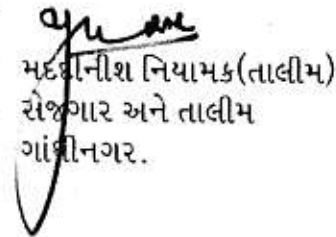 મદદનીશ નિયામક(તાલીમ)
રોજગાર અને તાલીમ
ગાંધીનગર.